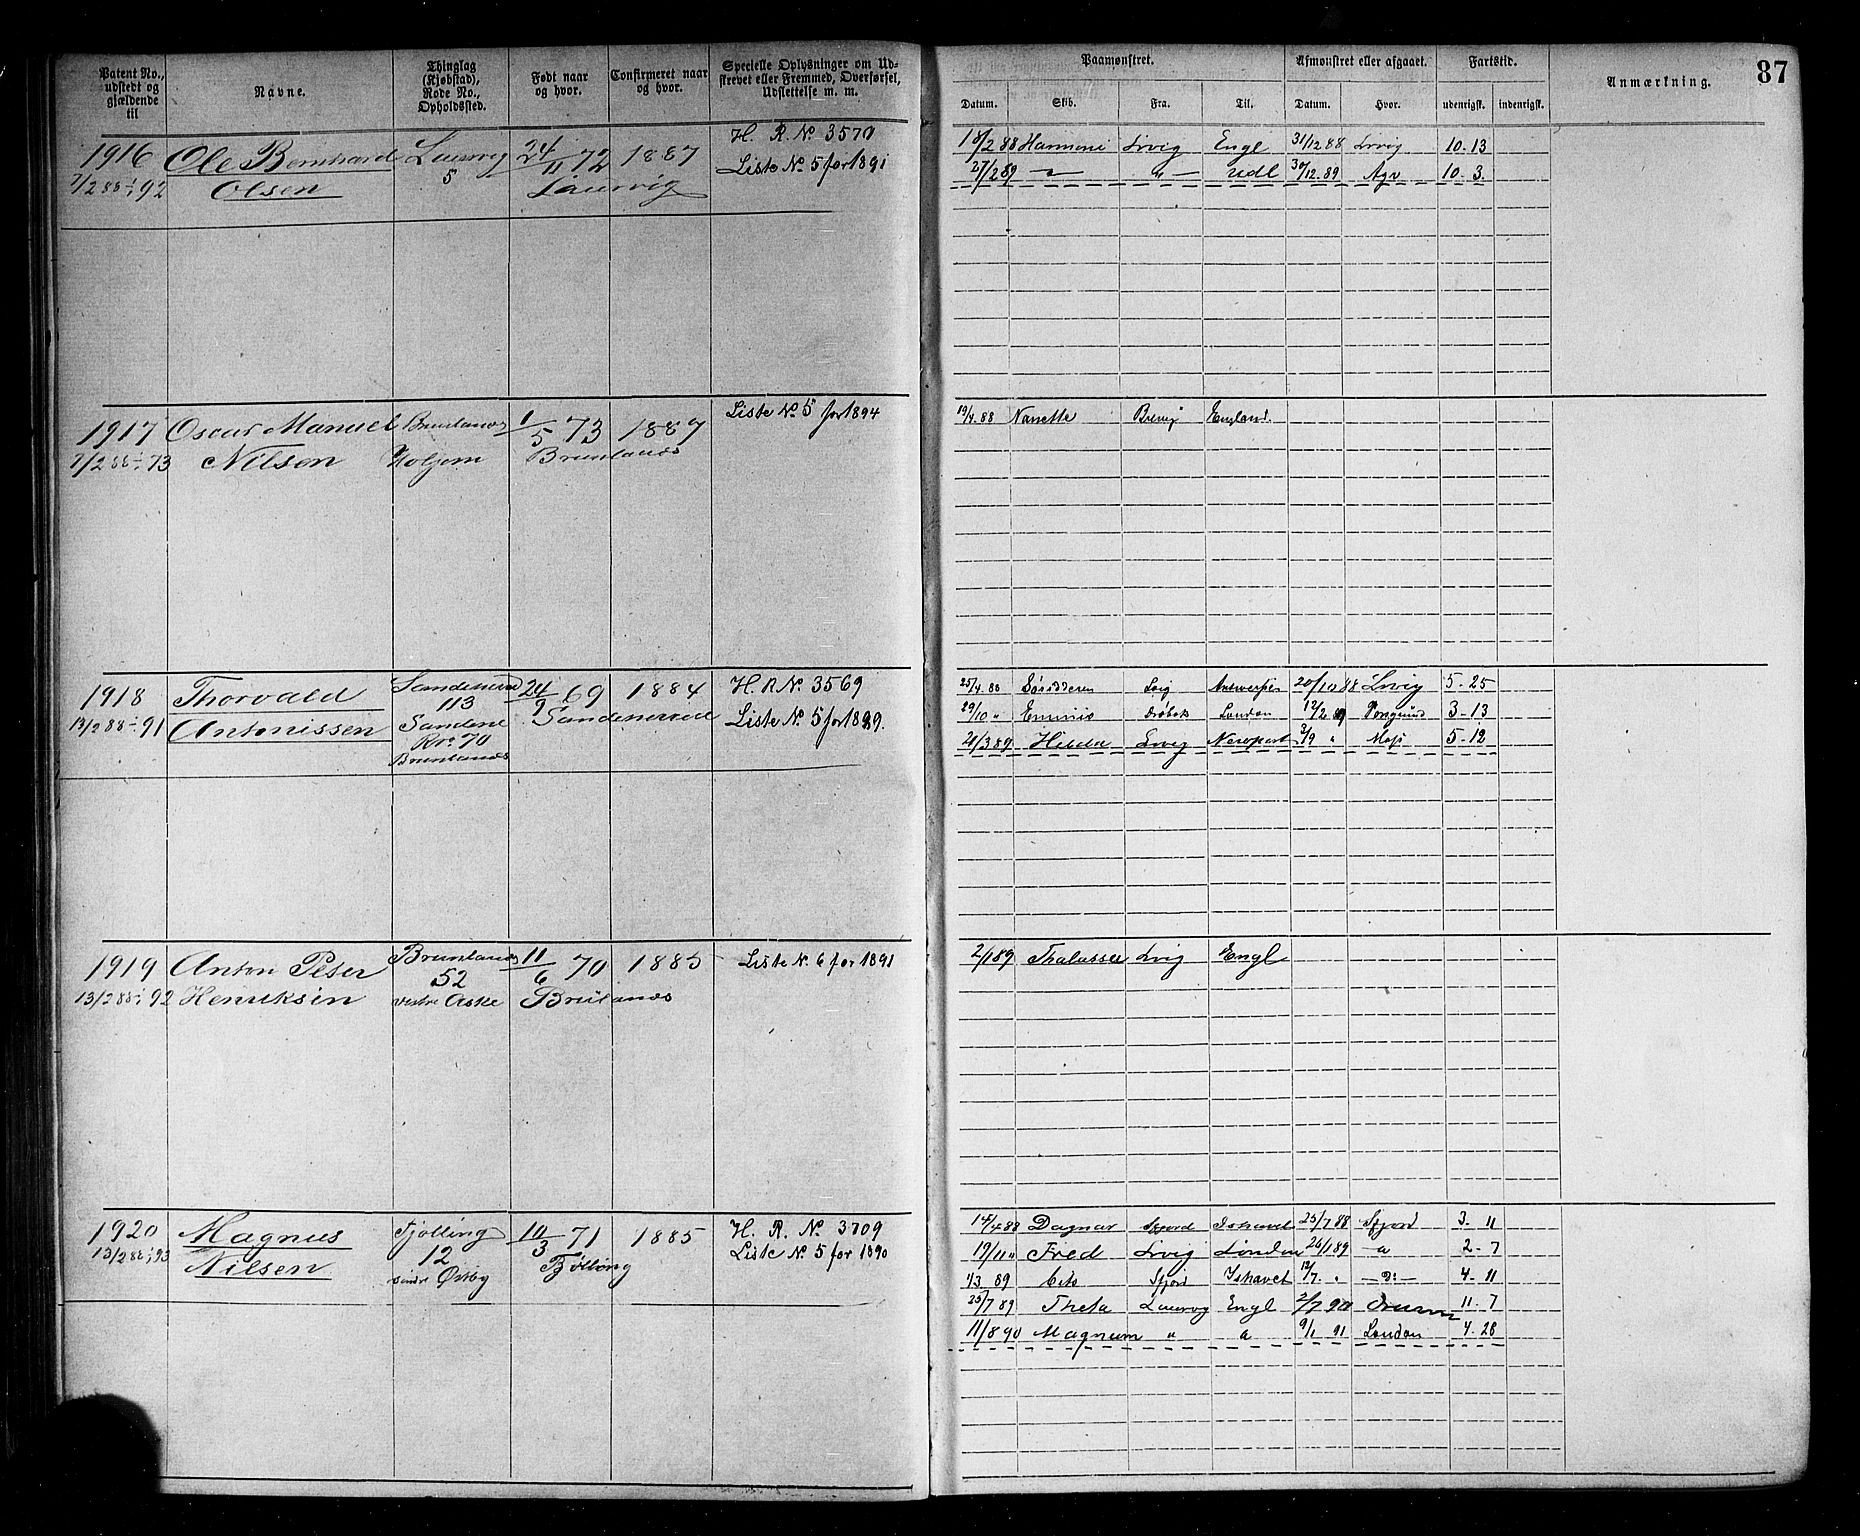 Patent No., udstedt og gjældende til
Navne.
Thinglag (Kjøbstad), Rode No., Opholdssted.
Født naar og hvor.
Confirmeret naar og hvor.
Specielle Oplysninger om Udskrevet eller Fremmed, Overførsel, Udslettelse m. m.
Paamønstret.
Afmønstret eller afgaaet.
Fartstid.
Anmærkning.
87
Datum. Skib. Fra. Til. Datum. Hvor. udenrigsk. indenrigsk.
1916 Ole Bernhard Laurvig 24/11 72 1887 H. R. No 3570
7/2 88 - 1/1 92 Olsen 5 Laurvig Liste No. 5 for 1891
18/2 88 Harmoni Lrvig Engl 31/12 88 Lrvig 10-13
27/2 89 — " — Udl 30/12.89 10 3.
1917 Oscar Manuel Brunlanæs 1/5 73 1887 Liste No. 5 for 1894
7/2 88 - 1/1 73 Nilsen Brunlanæs
19/4. 88 Nanette Brevig England.
1918 Thorvald Sandeherred 24/9 69 1884 H. R No. 3569
113
13/2 88 - 1/1 91 Antonissen Sandene Sandeherred Liste No. 5 for 1889.
Rno. 70
Brunlanæs
25/4. 88 Lvig Antwerpen 20/10 88 Lrvig 5-25
29/10 " Drøbak London 12/2 89 Porsgrund 3-13
21/3 89 Hilda Lrvig Newport 3/9 " Moss 5-12
1919 Anton Peter Brunlanæs 11/6 70 1885 Liste No. 6 for 1891
52
13/2 88 - 1/1 92 Henriksen vestre Aske Brunlanæs
2/1 89 Thalassee Lvig Engl
1920 Magnus Tjølling 10/3 71 1885 H. R. No. 3709
13/2 88 - 1/1 93 12 Liste No. 5 for 1890
Nilsen søndre Østby Tjølling
14/4 88 Dagnar Sfjord Ishavet 25/7 88 Sfjord 3-11
19/11 " Fred Lrvig London 26/1 89 — " 2-7
1/3 89 Sfjord Ishavet 12/7. " — D: — 4-11
25/7 89 Theta Laurvig Engl 2/7 90 11-7
11/8 90 Magnum " " 9/1 91 London 4.28